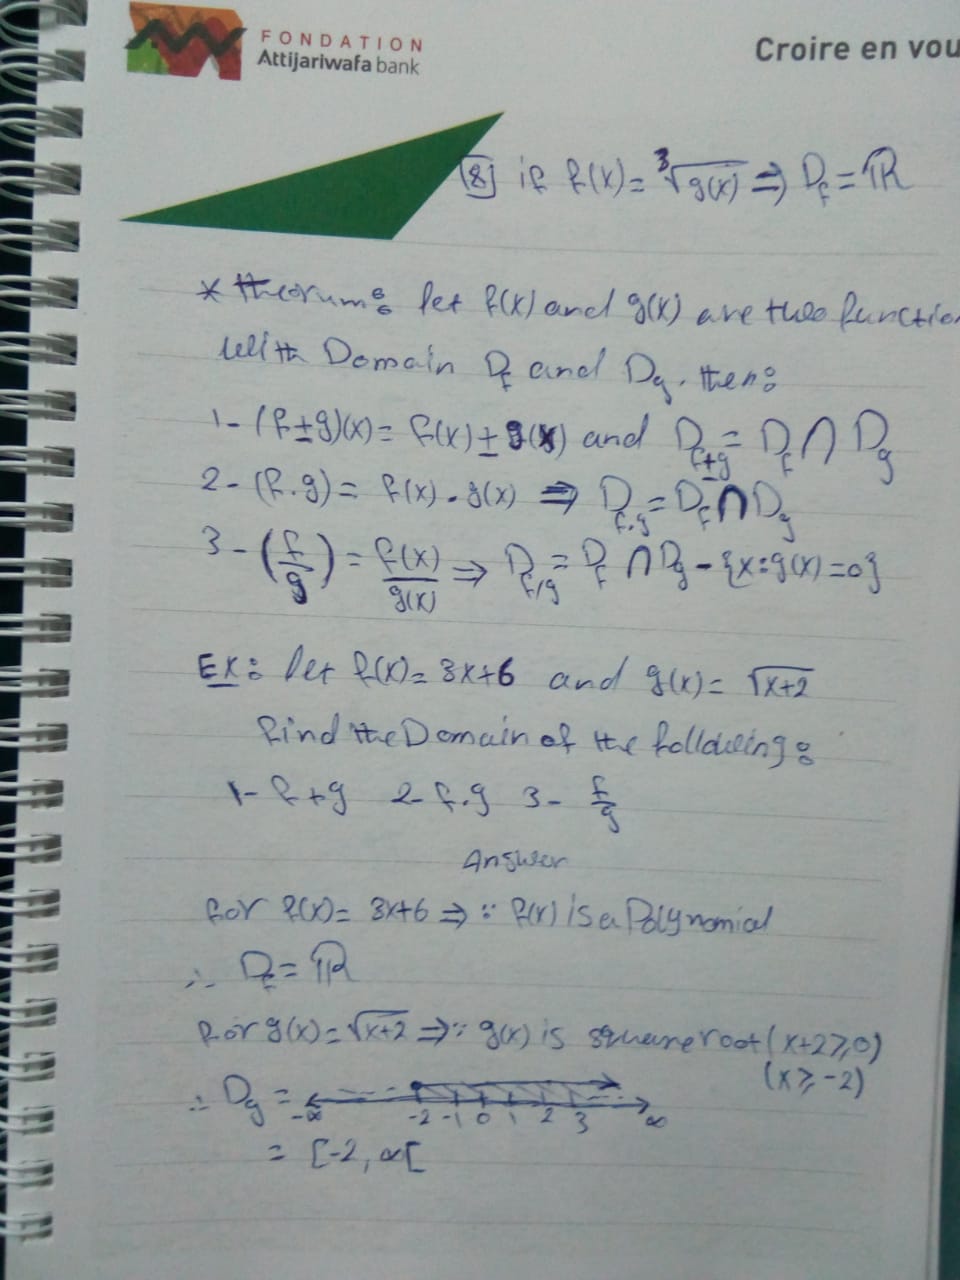 FONDATION
Attijariwafa bank
Croire en vou
[8] if f(x) = ³√g(x) ⇒ D_f = ℝ
* theorum: let f(x) and g(x) are two function
with Domain D_f and D_g, then:
1- (f±g)(x) = f(x) ± g(x) and D_f±g = D_f ∩ D_g
2- (f.g) = f(x) . g(x) ⇒ D_f.g = D_f ∩ D_g
3- (f/g) = f(x)/g(x) ⇒ D_f/g = D_f ∩ D_g - {x:g(x)=0}
EX: let f(x) = 3x+6 and g(x) = √x+2
find the Domain of the following:
1- f+g 2- f.g 3- f/g
Answer
for f(x) = 3x+6 ⇒ ∵ f(x) is a Polynomial
∴ D_f = ℝ
for g(x) = √x+2 ⇒ ∵ g(x) is square root (x+2≥0)
(x≥-2)
∴ D_g =
-∞ -2 -1 0 1 2 3 ∞
= [-2, ∞[